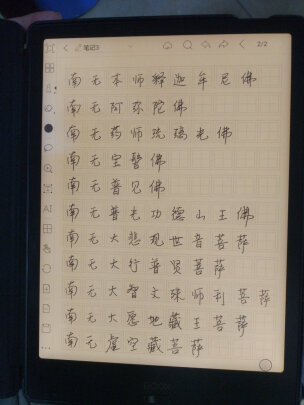 笔记3
2/2
南无本师释迦牟尼佛
南无阿弥陀佛
南无药师琉璃光佛
南无宝髻佛
南无普见佛
南无普光功德山王佛
南无大悲观世音菩萨
南无大行普贤菩萨
南无大智文殊师利菩萨
南无大愿地藏王菩萨
南无虚空藏菩萨
AI
BOOX